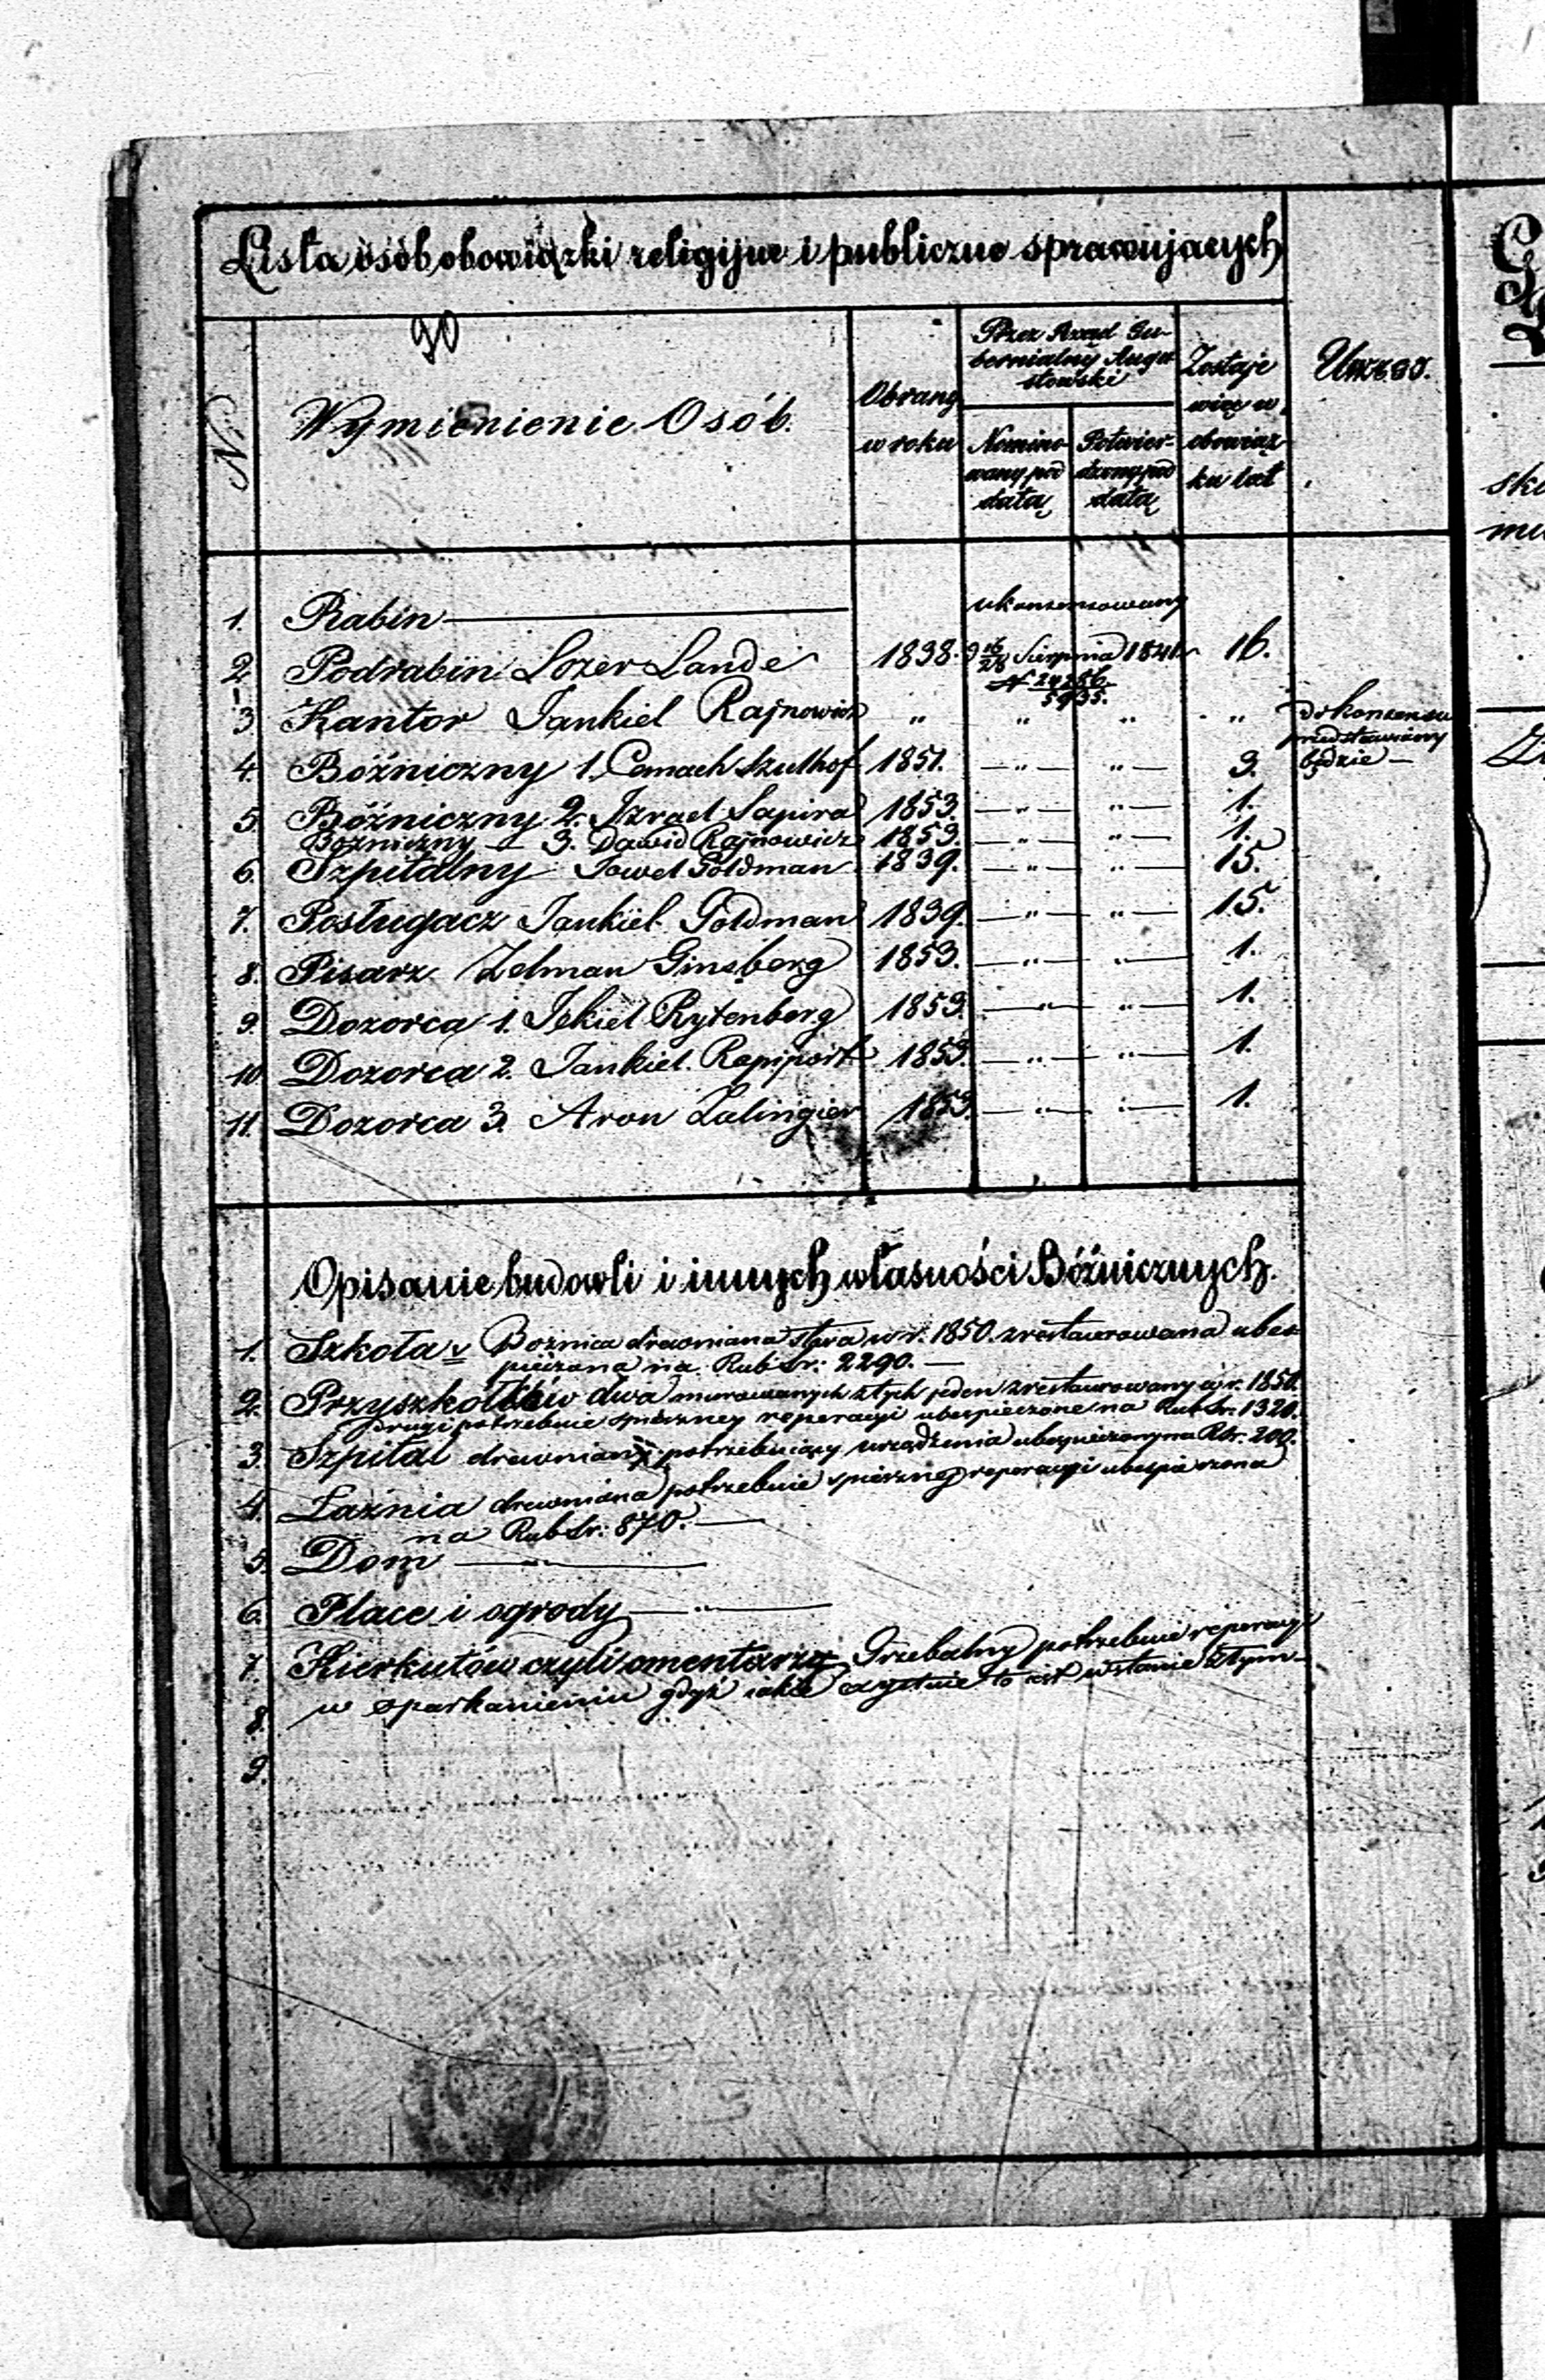 Lista osób obowiązki religijne i publiczne sprawujących
90
Nr.
Wymienienie Osób.
Obrany
w roku
Przez Rząd Gu-
bernialny Augu
stowski
Nomino-
wany pod
datą
Potwier-
dzony pod
datą
Zostaje
więc w
obowiąz-
ku lat
Uwagi.
1. Rabin
ukonsensowany
2. Podrabin Lozer Lande 1838. d 16/28 Sierpnia 1841 16.
N
5935.
3 Kantor Jankiel Rajnowicz " " " "
do konsensu
przedstawiony
będzie —
4. Bóźniczny 1. Cemach Szulhof 1851. — " — " — 3.
5. Bóźniczny 2. Izrael Sapira 1853. — " — " — 1.
Bóźniczny — 3. Dawid Rajnowicz 1853. — " — " — 1.
6. Szpitalny Jowel Goldman 1839. — " — " — 15.
7. Posługacz Jankiel Goldman 1839. — " — " — 15.
8. Pisarz Zelman Ginsberg 1853. — " — " — 1.
9. Dozorca 1. Jekiel Rytenberg 1853. — " — " — 1.
10 Dozorca 2. Jankiel Rapiport 1853. — " — " — 1.
11. Dozorca 3. Aron Zalingier 1853. — " — " — 1.
Opisanie budowli i innych własności Bóźnicznych.
1. Szkoła v Bożnica drewniana stara w r. 1850. zrestaurowana ubez
pieczona na Rub Sr: 2290. —
2. Przyszkółków dwa murowanych z tych jeden zrestaurowany w r. 1850.
drugi potrzebuie spieszney reperacyi ubezpieczone na Rub Sr. 1320.
3. Szpital drewniany potrzebuiący urządzenia ubezpieczony na RSr. 200.
4. Łaźnia drewniana potrzebuie spieszney reperacyi ubezpieczona
na Rub Sr: 870. —
5. Dom — " —
6. Place i ogrody — " —
7. Kierkutów czyli cmentarzy Grzebalny potrzebuie reperacyi
w oparkanieniu gdyż takie exystuie to jest w stanie złym
8.
9.